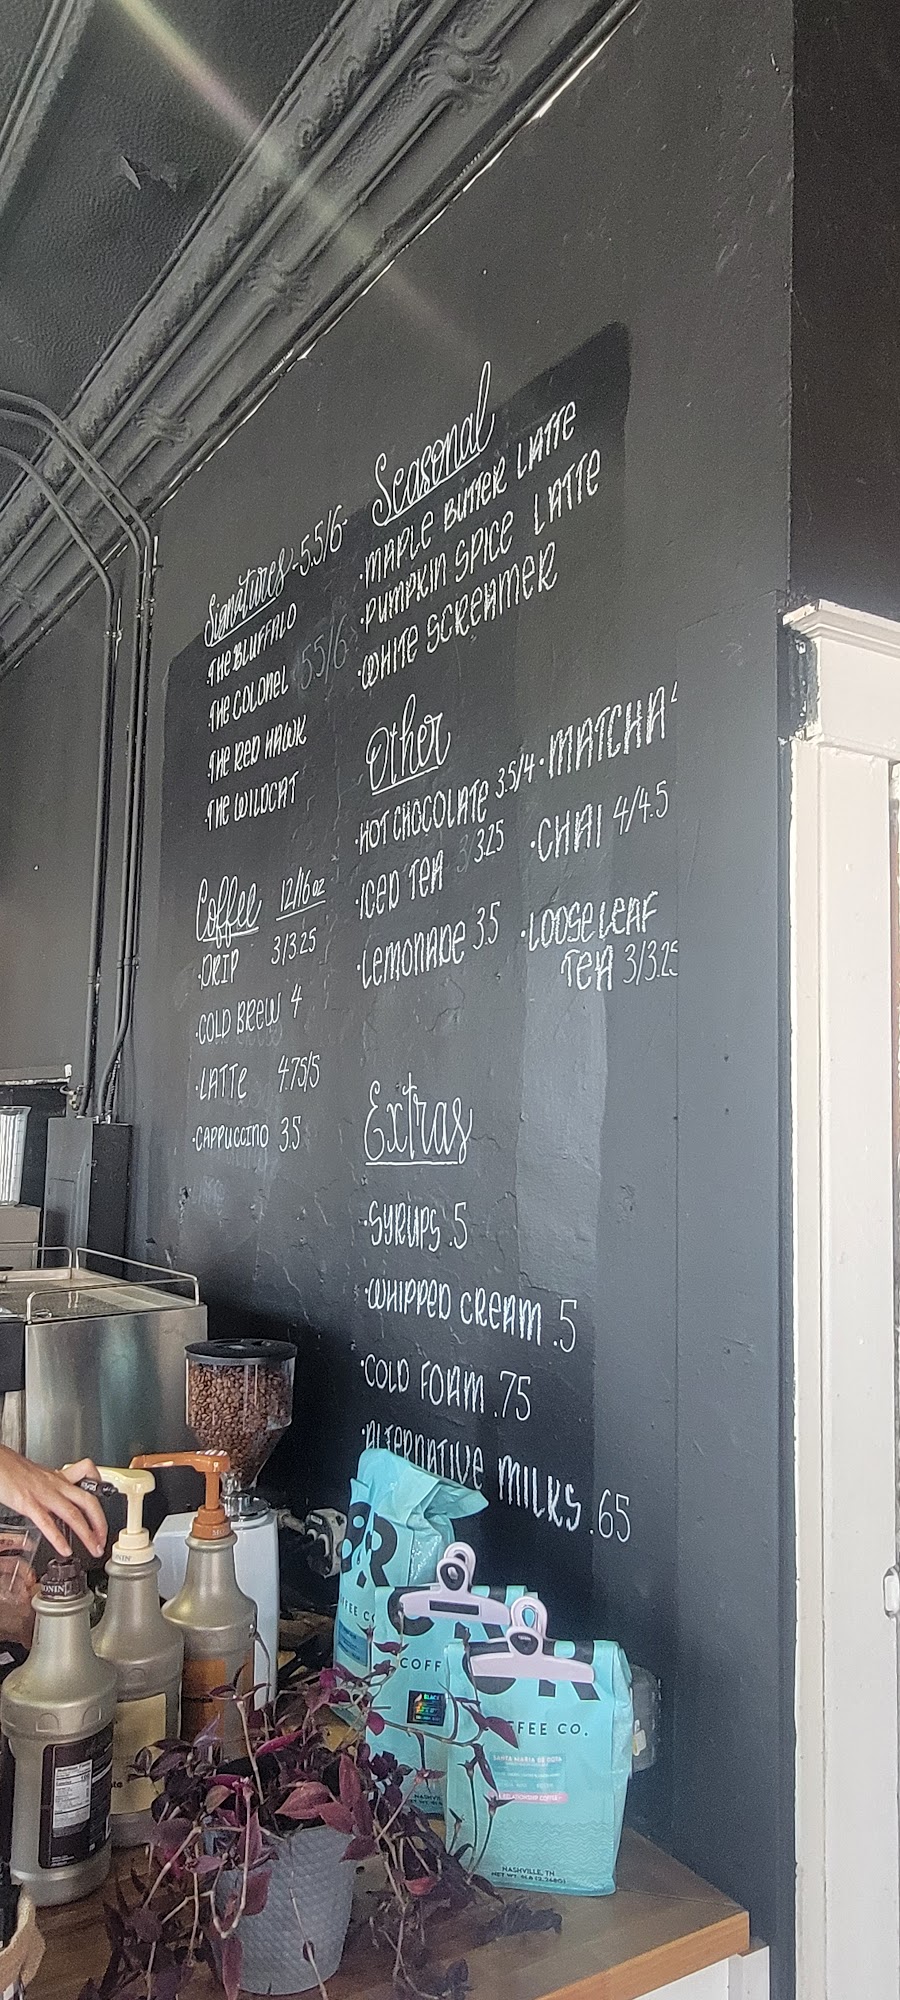 Signatures -5.5/6-
·THE BLUFFALO
·THE COLONEL
·THE RED HAWK
·THE WILDCAT
Coffee 12/16oz
·DRIP 3/3.25
·COLD BREW 4
·LATTE 4.75/5
·CAPPUCCINO 3.5
Seasonal
·MAPLE BUTTER LATTE
·PUMPKIN SPICE LATTE
·WHITE SCREAMER
Other
·HOT CHOCOLATE 3.5/4
·ICED TEA 3.25
·LEMONADE 3.5
·MATCHA
·CHAI 4/4.5
·LOOSE LEAF
TEA 3/3.25
Extras
·SYRUPS .5
·WHIPPED CREAM .5
·COLD FOAM .75
·ALTERNATIVE MILKS .65
COFF
FFEE CO.
SANTA MARIA DE DOTA
NASHVILLE, TN